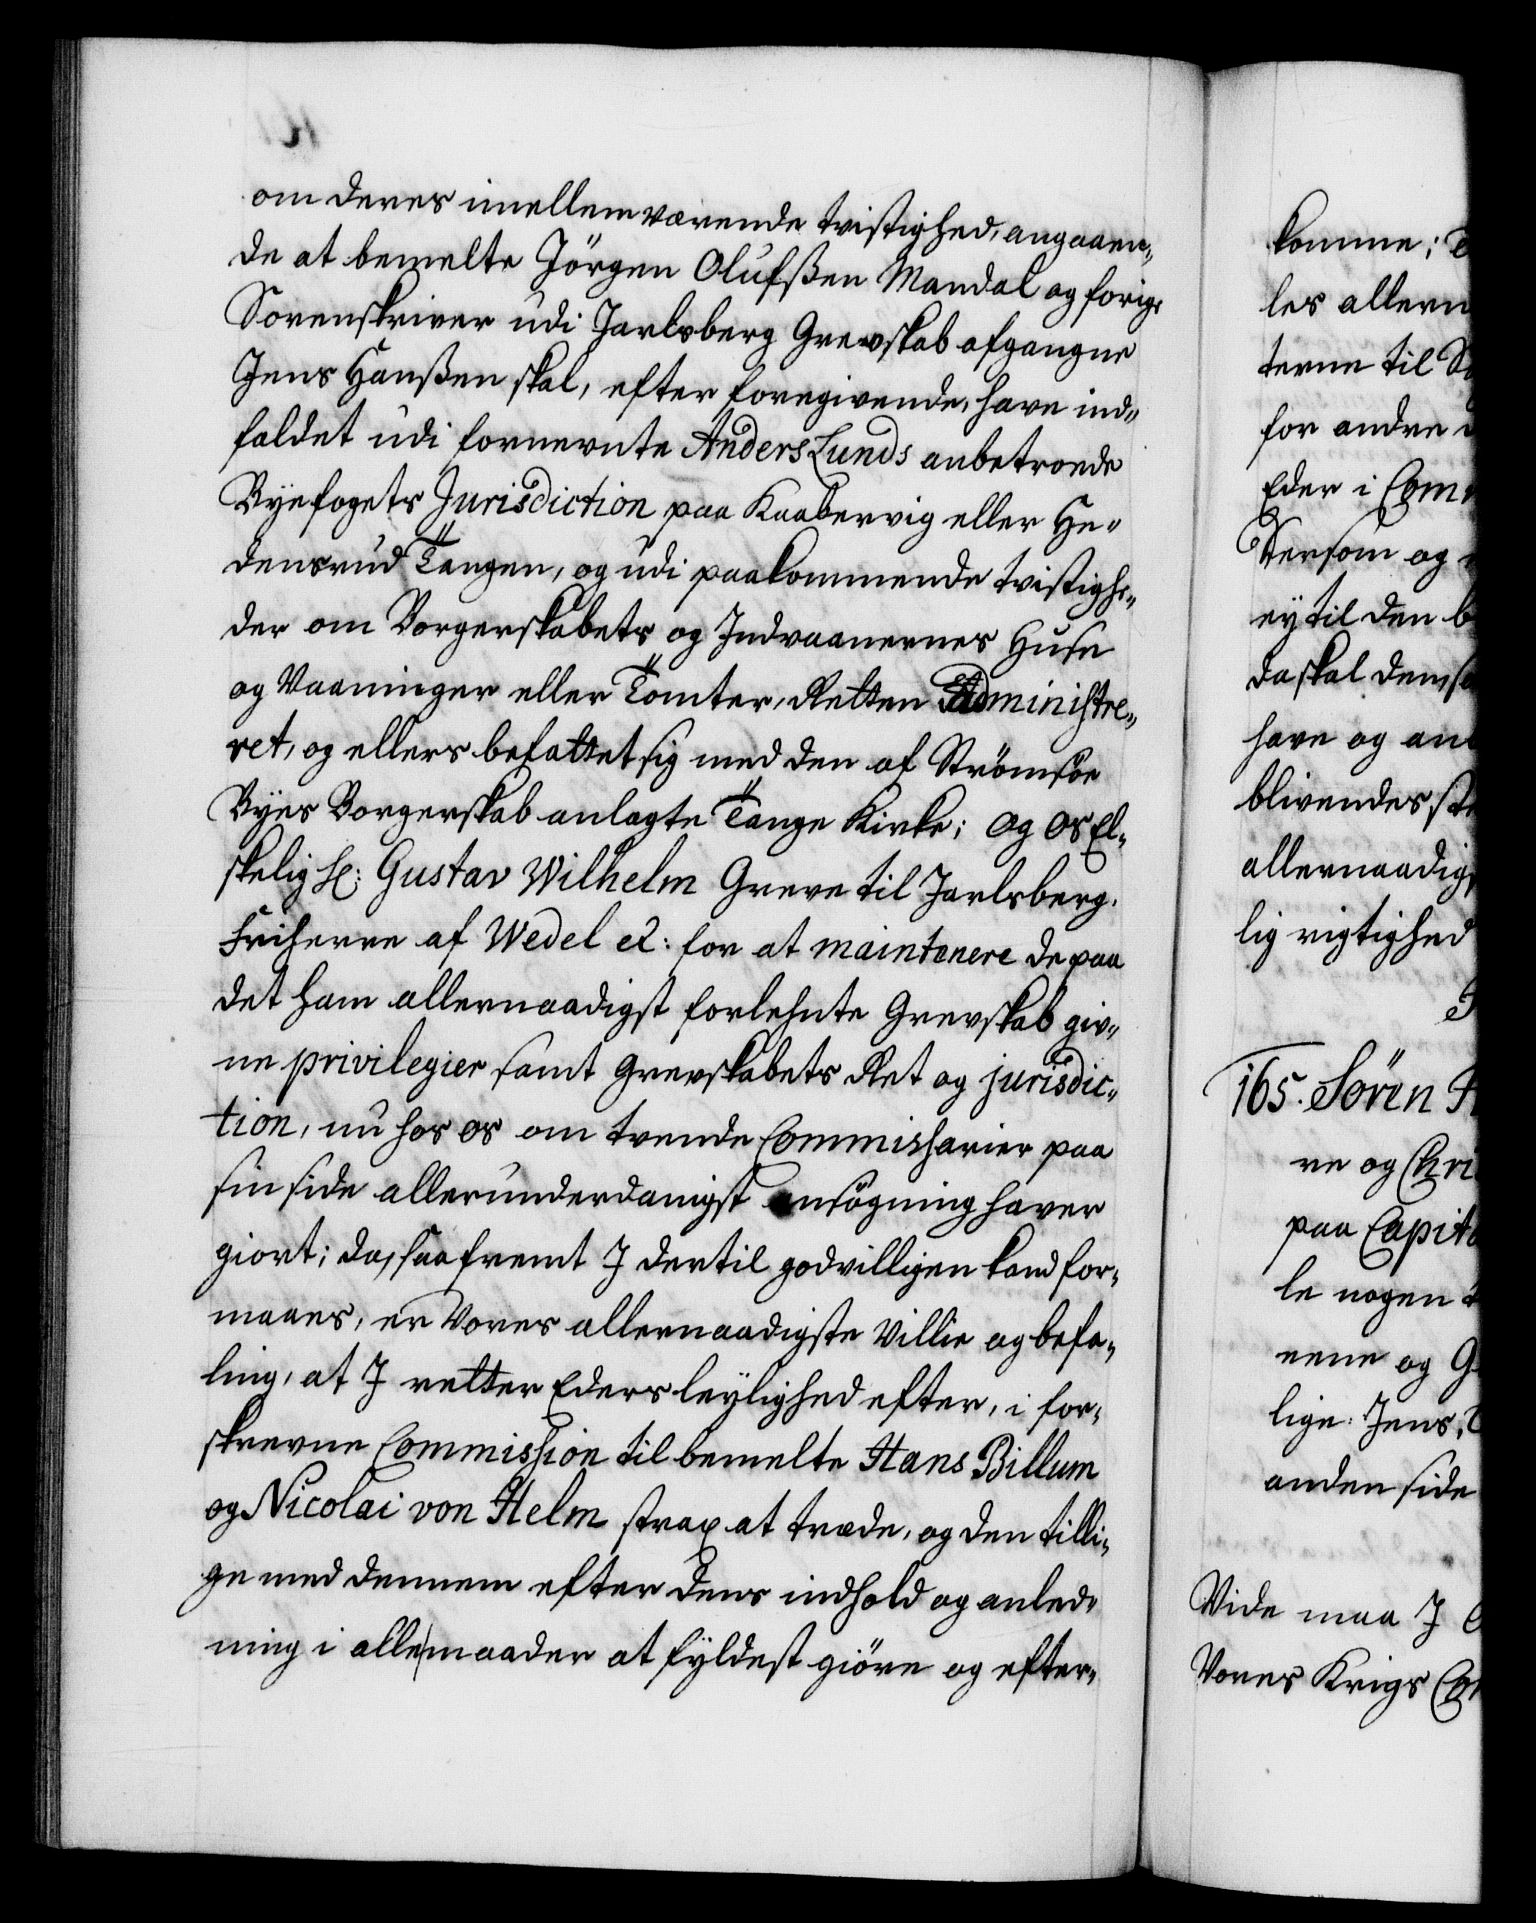 om deres imellem værende tvistighed, angaaen¬
de at bemelte Jörgen Olufsßen Mandal og forige
Sorenskriver udi Jarlsberg Grevskab afgangne
Jens Hanßen skal, efter foregivende, have ind¬
faldet udi fornevnte Anders Lunds anbetroede
Byefogets Jurisdiction paa Kaabervig eller He¬
densrud Tangen, og udi paakommende tvistighe¬
der om Borgerskabets og Indvaanernes Huse
og Vaaninger eller Tomter, Retten Administre¬
ret, og ellers befattet sig med den af Strömsöe
Byes Borgerskab anlagte Tange Kirke; og os El¬
skelig Hr: Gustav Wilhelm Greve til Jarlsberg.
Friherre af Wedel etc: for at maintenere de paa
det ham allernaadigst forlehnte Grevskab giv¬
ne privilegier samt Grevskabets Ret og jurisdic¬
tion, nu hos os om tvende Commissarier paa
sin side allerunderdanigst ansögning haver
giort; da, saafremt I dertil godvilligen kand for¬
maaes, er Vores allernaadigste Villie og befa¬
ling, at I retter Eders leylighed efter, i for¬
skrevne Commission til bemelte Hans Billum
og Nicolai von Helm strax at træde, og den tilli¬
ge med dennem efter dens indhold og anled¬
ning i alle maader at fyldest giöre og efter¬
komme; 
les allern
terne til
for andre
Eder i Com
Dersom og
ey til den b
da skal dem, s
have og an
blivendes st
allernaadigs
lig rigtighed
165. Sören H
re og Chri
paa Capit
le nogen
eene og G
lige: Jens
anden side
Vide maa I
Vores Krigs Com